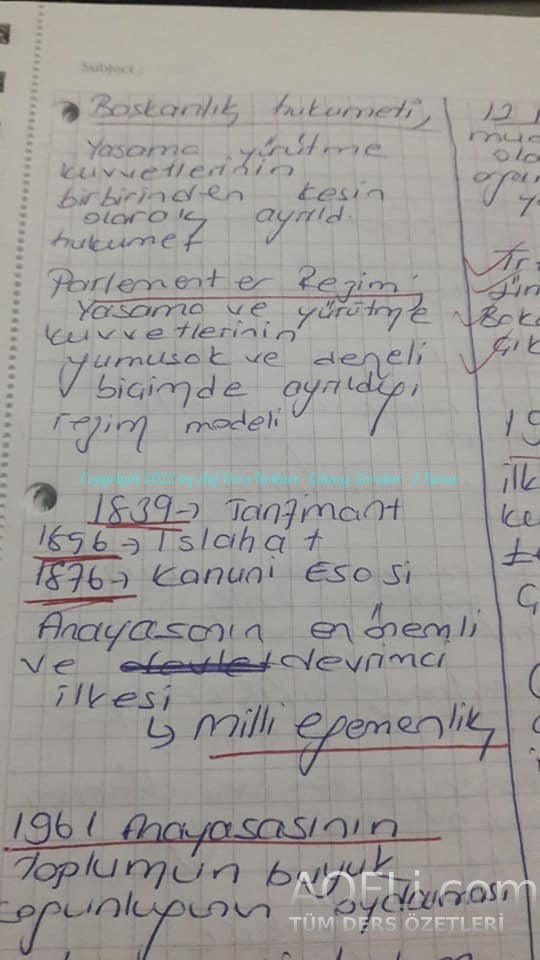 Subject:
Başkanlık hukumeti,
Yasama yürütme
kuvvetlerinin
birbirinden kesin
olarak ayrıld.
hukumet
Parlementer Rejim
Yasama ve yürütme
kuvvetlerinin
yumusak ve dengeli
biçimde ayrıldığı
rejim modeli
Copyright 2022 by Aöf Ders Notları - Çıkmış Sorular
1839 → Tanzimant
1896 → Islahat
1876 → Kanuni Esosi
Anayasanın en önemli
ve devrimci
ilkesi
↳ milli egemenlik
1961 Anayasasının
Toplumun büyük
çogunlugunun oydaması
AOFLi.com
TÜM DERS ÖZETLERİ
12
mu
ola
Tr
Bak
Çık
19
ilk
ke